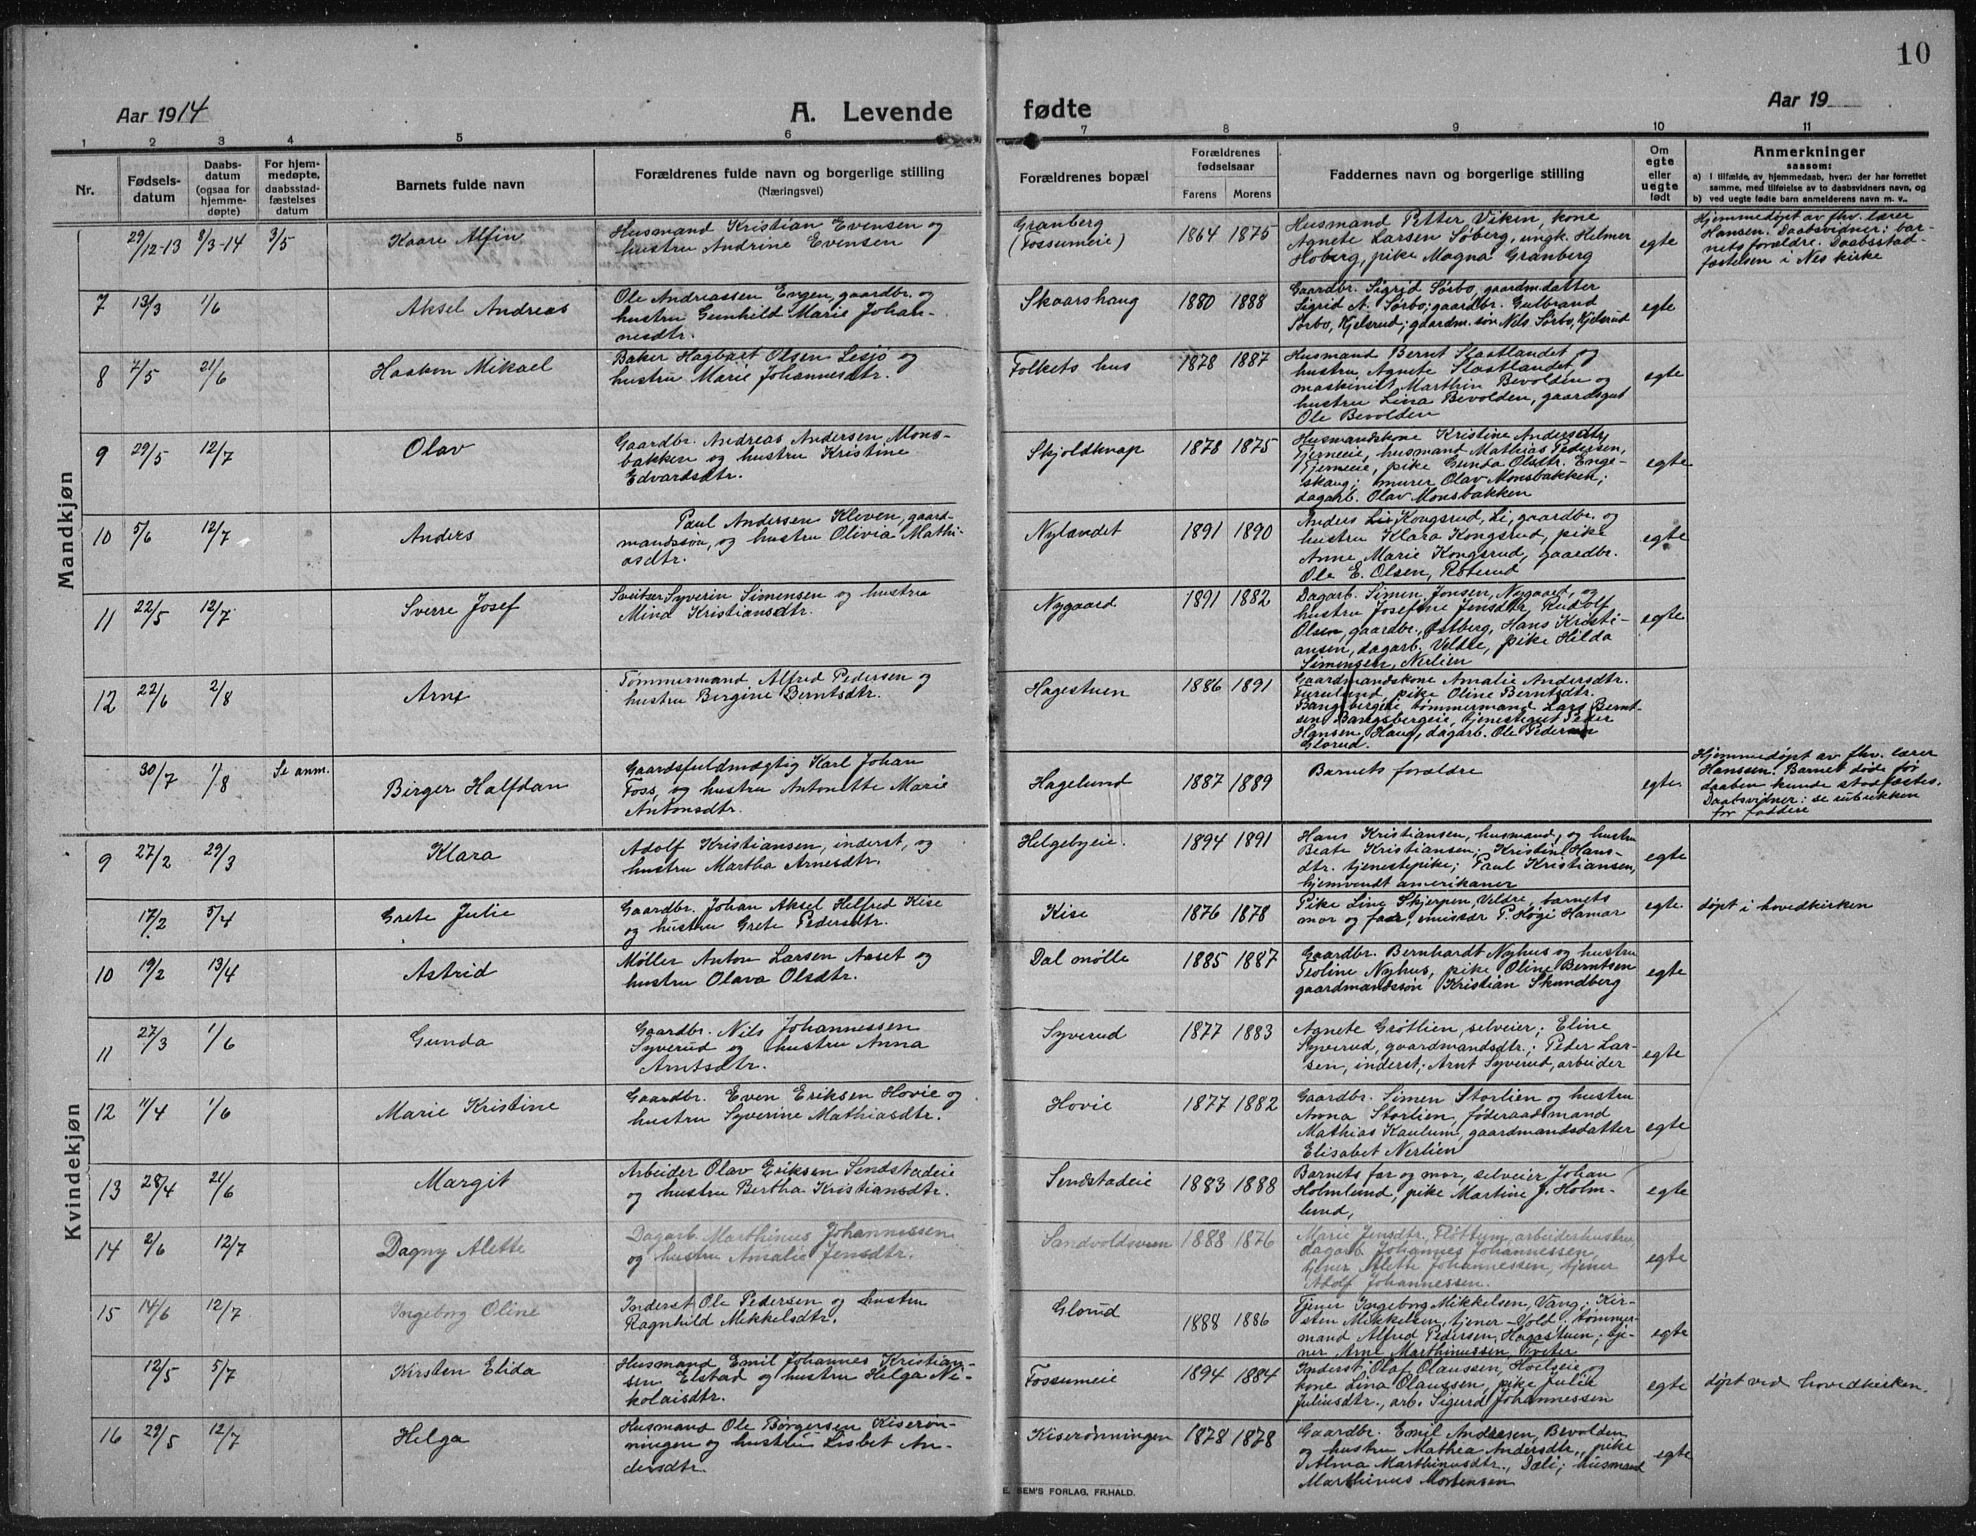 10
Aar 1914
A. Levende
fødte
Aar 19
1 2 3 4 5 6 7 8 9 10 11
Nr.
Fødsels-
datum
Daabs-
datum
(ogsaa for
hjemme-
døpte)
For hjem-
medøpte,
daabsstad-
fæstelses
datum
Barnets fulde navn
Forældrenes fulde navn og borgerlige stilling
(Næringsvei)
Forældrenes bopæl
Forældrenes
fødselsaar
Farens Morens
Faddernes navn og borgerlige stilling
Om
egte
eller
uegte
født
Anmerkninger
saasom:
a) I tilfælde av hjemmedaab, hvem der har forrettet
samme, med tilføielse av to daabsvidners navn, og
b) ved uegte fødte barn anmelderens navn m. v..
Mandkjøn
29/12-13 8/3-14 3/5
Kaare Alfin
Husmand Kristian Evensen og
hustru Andrine Evensen
Granberg
(Fossumeie)
1864 1875
Husmand Petter Viken, kone
Agnete Larsen Søberg, ungk. Helmer
Hoberg, pike Magna Granberg
egte
Hjemmedøpt av fhv. lærer
Hansen. Daabsvidner: bar-
nets forældre. Daabsstad-
fæstelsen i Nes kirke
7 13/3 1/6
Aksel Andreas
Ole Andreassen Engen, gaardbr. og
hustru Gunhild Marie Johan-
nesdtr.
Skaarshaug
1880 1888
Gaardbr. Sigrid Sørbo, gaardm.datter
Sigrid A. Sørbo; gaardbr. Gulbrand
Sørbo, Kjelsrud; gaardm.søn Nils Sørbo, Kjelsrud
egte
8 7/5 21/6
Haakon Mikael
Baker Hagbart Olsen Lesjø og
hustru Marie Johannesdtr.
Folkets hus
1878 1887
Husmand Bernt Slaatlandet og
hustru Agnete Slaatlandet,
maskinist Marthin Bevolden og
hustru Lina Bevolden, gaardsgut
Ole Bevolden
egte
9 29/5 12/7
Olav
Gaardbr. Andreas Andersen Mons-
bakken og hustru Kristine
Edvardsdtr.
Skjoldknap
1878 1875
Husmandskone Kristine Andersdtr,
Tjerneie, husmand Mathias Pedersen,
Tjerneie, pike Gunda Olsdtr. Enge-
skaug; murer Olav Monsbakken;
dagarb. Olav Monsbakken
egte
10 5/6 12/7
Anders
Paul Andersen Kleven, gaard-
mandssøn, og hustru Olivia Mathi-
asdtr.
Nylandet
1891 1890
Anders Kongsrud, Li, gaardbr. og
hustru Klara Kongsrud, pike
Anne Marie Kongsrud, gaardbr.
Ole E. Olsen, Roterud
egte
11 22/5 12/7
Sverre Josef
Sveitser Syverin Simensen og hustru
Mina Kristiansdtr.
Nygaard
1891 1882
Dagarb. Simen Jonsen, Nygaard, og
hustru Josefine Jensdtr, Rudolf
Olsen, gaardbr., Østberg, Hans Kristi-
ansen, dagarb. Veldre, pike Hilda
Simensen, Nerlien
egte
12 22/6 2/8
Arne
Tømmermand Alfred Pedersen og
hustru Bergine Berntsdtr.
Hagestuen
1886 1891
Gaardmandskone Amalie Andersdtr.
Furulund, pike Oline Berntsdtr.
Bangsbergeie tømmermand Lars Bernt-
sen Bangsbergeie, tjenestegut Peder
Hansen, Haug, dagarb. Ole Pedersen
Glorud.
egte
30/7 1/8 Se anm.
Birger Halfdan
Gaardsfuldmægtig Karl Johan
Foss, og hustru Antonette Marie
Antonsdtr.
Hagelund
1887 1889
Barnets forældre
egte
Hjemmedøpt av fhv. lærer
Hanssen. Barnet døde før
daaben kunde stadfæstes.
Daabsvidner: se rubrikken
for faddere
Kvindekjøn
9 27/2 29/3
Klara
Adolf Kristiansen, inderst, og
hustru Martha Arnesdtr.
Helgebyeie.
1894 1891
Hans Kristiansen, husmand, og hustru
Beate Kristiansen; Kristine Hans-
dtr. tjenestepike; Paul Kristiansen,
hjemvendt amerikaner
egte
17/2 5/4
Grete Julie
Gaardbr. Johan Aksel Helfred Kise
og hustru Grete Pedersdtr.
Kise
1876 1878
Pike Line Skjerpen, Veldre, barnets
mor og far, emissær P. Høgi Hamar
egte
døpt i hovedkirken
10 19/2 13/4
Astrid
Møller Anton Larsen Aaset og
hustru Olava Olsdtr.
Dal mølle
1885 1887
Gaardbr. Bernhardt Nyhus og hustru
Teoline Nyhus, pike Oline Berntsen
gaardmandssøn Kristian Skundberg
egte
11 27/3 1/6
Gunda
Gaardbr. Nils Johannessen
Syverud og hustru Anna
Arntsdtr.
Syverud
1877 1883
Agnete Grøtlien, selveier; Eline
Syverud, gaardmandsdtr.; Peder Lar-
sen, inderst; Arnt Syverud, arbeider
egte
12 11/4 1/6
Marie Kristine
Gaardbr. Even Eriksen Hovie og
hustru Syverine Mathiasdtr.
Hovie
1877 1882
Gaardbr. Simen Storlien og hustru
Anna Storlien, føderaadsmand
Mathias Kaulum, gaardmandsdatter
Elisabet Nerlien
egte
13 28/4 21/6
Margit
Arbeider Olav Eriksen Sendstadeie
og hustru Bertha Kristiansdtr.
Sendstadeie
1883 1888
Barnets far og mor, selveier Johan
Holmlund, pike Martine J. Holm-
lund,
egte
14 2/6 12/7
Dagny Alette
Dagarb. Marthinus Johannessen
og hustru Amalie Jensdtr.
Sandvoldsveen
1888 1876
Marie Jensdtr, Fløttum, arbeiderhustru,
dagarb. Johannes Johannessen,
tjener Alette Johannessen, tjener
Adolf Johannessen.
egte
15 14/6 12/7
Ingeborg Oline
Inderst Ole Pedersen og hustru
Ragnhild Mikkelsdtr.
Glorud
1888 1886
Tjener Ingeborg Mikkelsen, Vang; Kir-
sten Mikkelsen, tjener Dold; tømmer-
mand Alfred Pedersen, Hagestuen; tje-
ner Arne Marthinussen, Tveter
egte
12/5 5/7
Kirsten Elida
Husmand Emil Johannes Kristian-
sen Elstad og hustru Helga Ni-
kolaisdtr.
Fossumeie
1894 1884
Inderst Olaf Olaussen, Hoelseie og
kone Lina Olaussen, pike Julie
Juliusdtr., arb. Sigurd Johannessen
egte
døpt ved hovedkirken.
16 29/5 12/7
Helga
Husmand Ole Børgersen Kiserøn-
ningen og hustru Lisbet An-
dersdtr.
Kiserønningen
1878 1878
Gaardbr. Emil Andresen, Bevolden
og hustru Mathea Andersdtr., pike
Alma Marthinusdtr., Dæli; husmand
Marthinus Mortensen
egte
E. SEM'S FORLAG, FR.HALD.